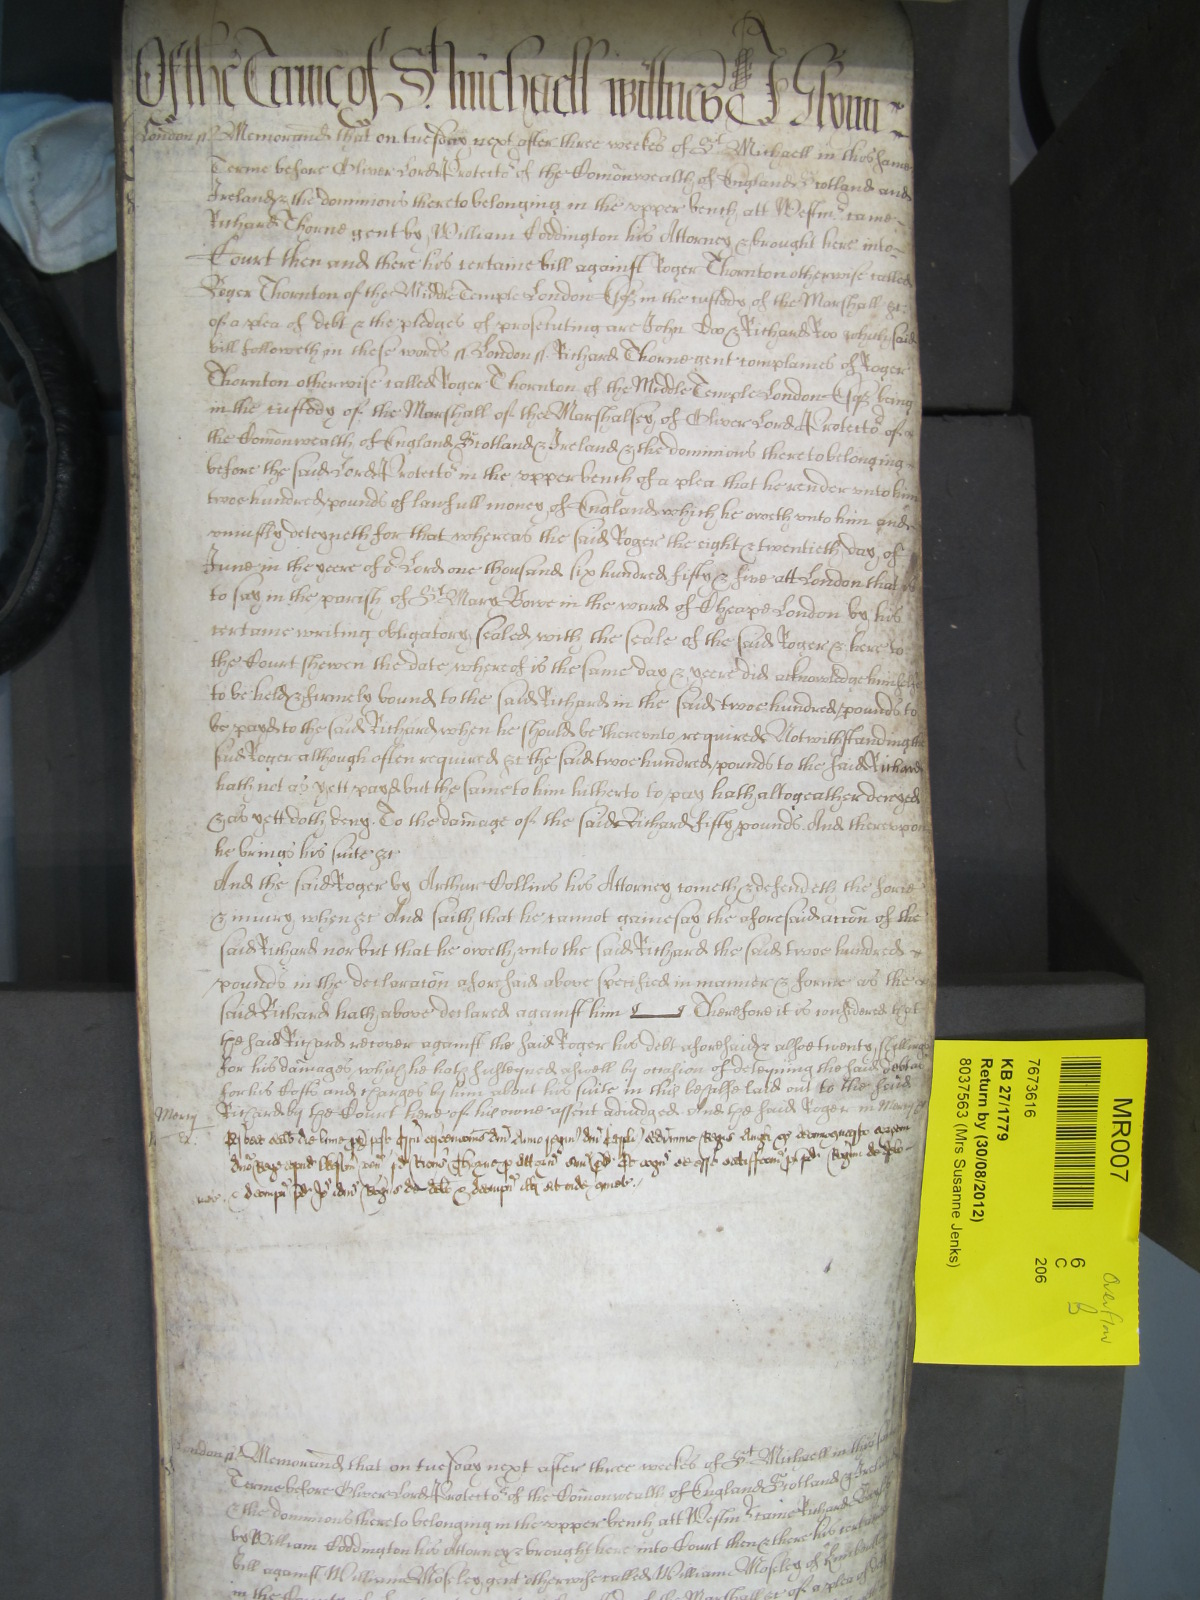 Of the Terme of St. Michaell wittnes J Glynn
London ss Memorand that on tuesday next after three weekes of St Michaell in this same
Terme before Oliver Lord Protector of the Comonwealth of England Scotland and
Ireland & the dominions thereto belonging in the upper bench att Westmr came
Richard Thorne gent by William Coddington his Attorney & brought here into
Court then and there his certaine bill against Roger Thornton otherwise called
Roger Thornton of the Middle Temple London Esqr in the custody of the Marshall &c
of a plea of debt & the pledges of prosecuting are John Doo & Richard Roo which said
bill followeth in these words ss London ss Richard Thorne gent complaines of Roger
Thornton otherwise called Roger Thornton of the Middle Temple London Esqr being
in the custody of the Marshall of the Marshalsey of Oliver Lord Protector of
the Comonwealth of England Scotland & Ireland & the dominions thereto belonging
before the said Lord Protector in the upper bench of a plea that he render unto him
twoe hundred pounds of lawfull money of England which he oweth unto him and
uniustly deteyneth for that whereas the said Roger the eight & twentieth day of
June in the yeere of or Lord one thousand six hundred fifty & five att London that is
to say in the parish of St Mary Bowe in the ward of Cheape London by his
certaine writing obligatory sealed with the seale of the said Roger & here to
the Court shewen the date whereof is the same day & yeere did acknowledge himselfe
to be held & firmely bound to the said Richard in the said twoe hundred pounds to
be payd to the said Richard when he should be thereunto required Notwithstanding the
said Roger although often required &c the said twoe hundred pounds to the said Richard
hath not as yett payd but the same to him hitherto to pay hath altogeather denyed
& as yett doth deny. To the damage of the said Richard fifty pounds. And thereupon
he brings his suite &c
And the said Roger by Arthur Collins his Attorney cometh & defendeth the force
& iniury when &c And saith that he cannot gainesay the aforesaid action of the
said Richard nor but that he oweth unto the said Richard the said twoe hundred
pounds in the declaracon aforesaid above specified in manner & forme as the
said Richard hath above declared against him Therefore it is considered that
the said Richard recover against the said Roger his debt aforesaid & alsoe twenty shillings
for his damages which he hath susteyned aswell by occasion of deteyning the said debt as
for his Costs and charges by him about his suite in this behalfe laid out to the said
Mercy Richard by the Court here of his owne assent adiudged And the said Roger in Mercy &c
London ss Memorand that on tuesday next after three weekes of St Michaell in this same
Terme before Oliver Lord Protector of the Comonwealth of England Scotland & Ireland
& the dominions thereto belonging in the upper bench att Westmr came Richard
by William Coddington his Attorney & brought here into Court then & there his certaine
bill against William Moseley gent otherwise called William Moseley of
in the Marshall &c of a plea of debt
MR007
7673616
6
C
206
KB 27/1779
Return by (30/08/2012)
8037563 (Mrs Susanne Jenks)
Overflow
B